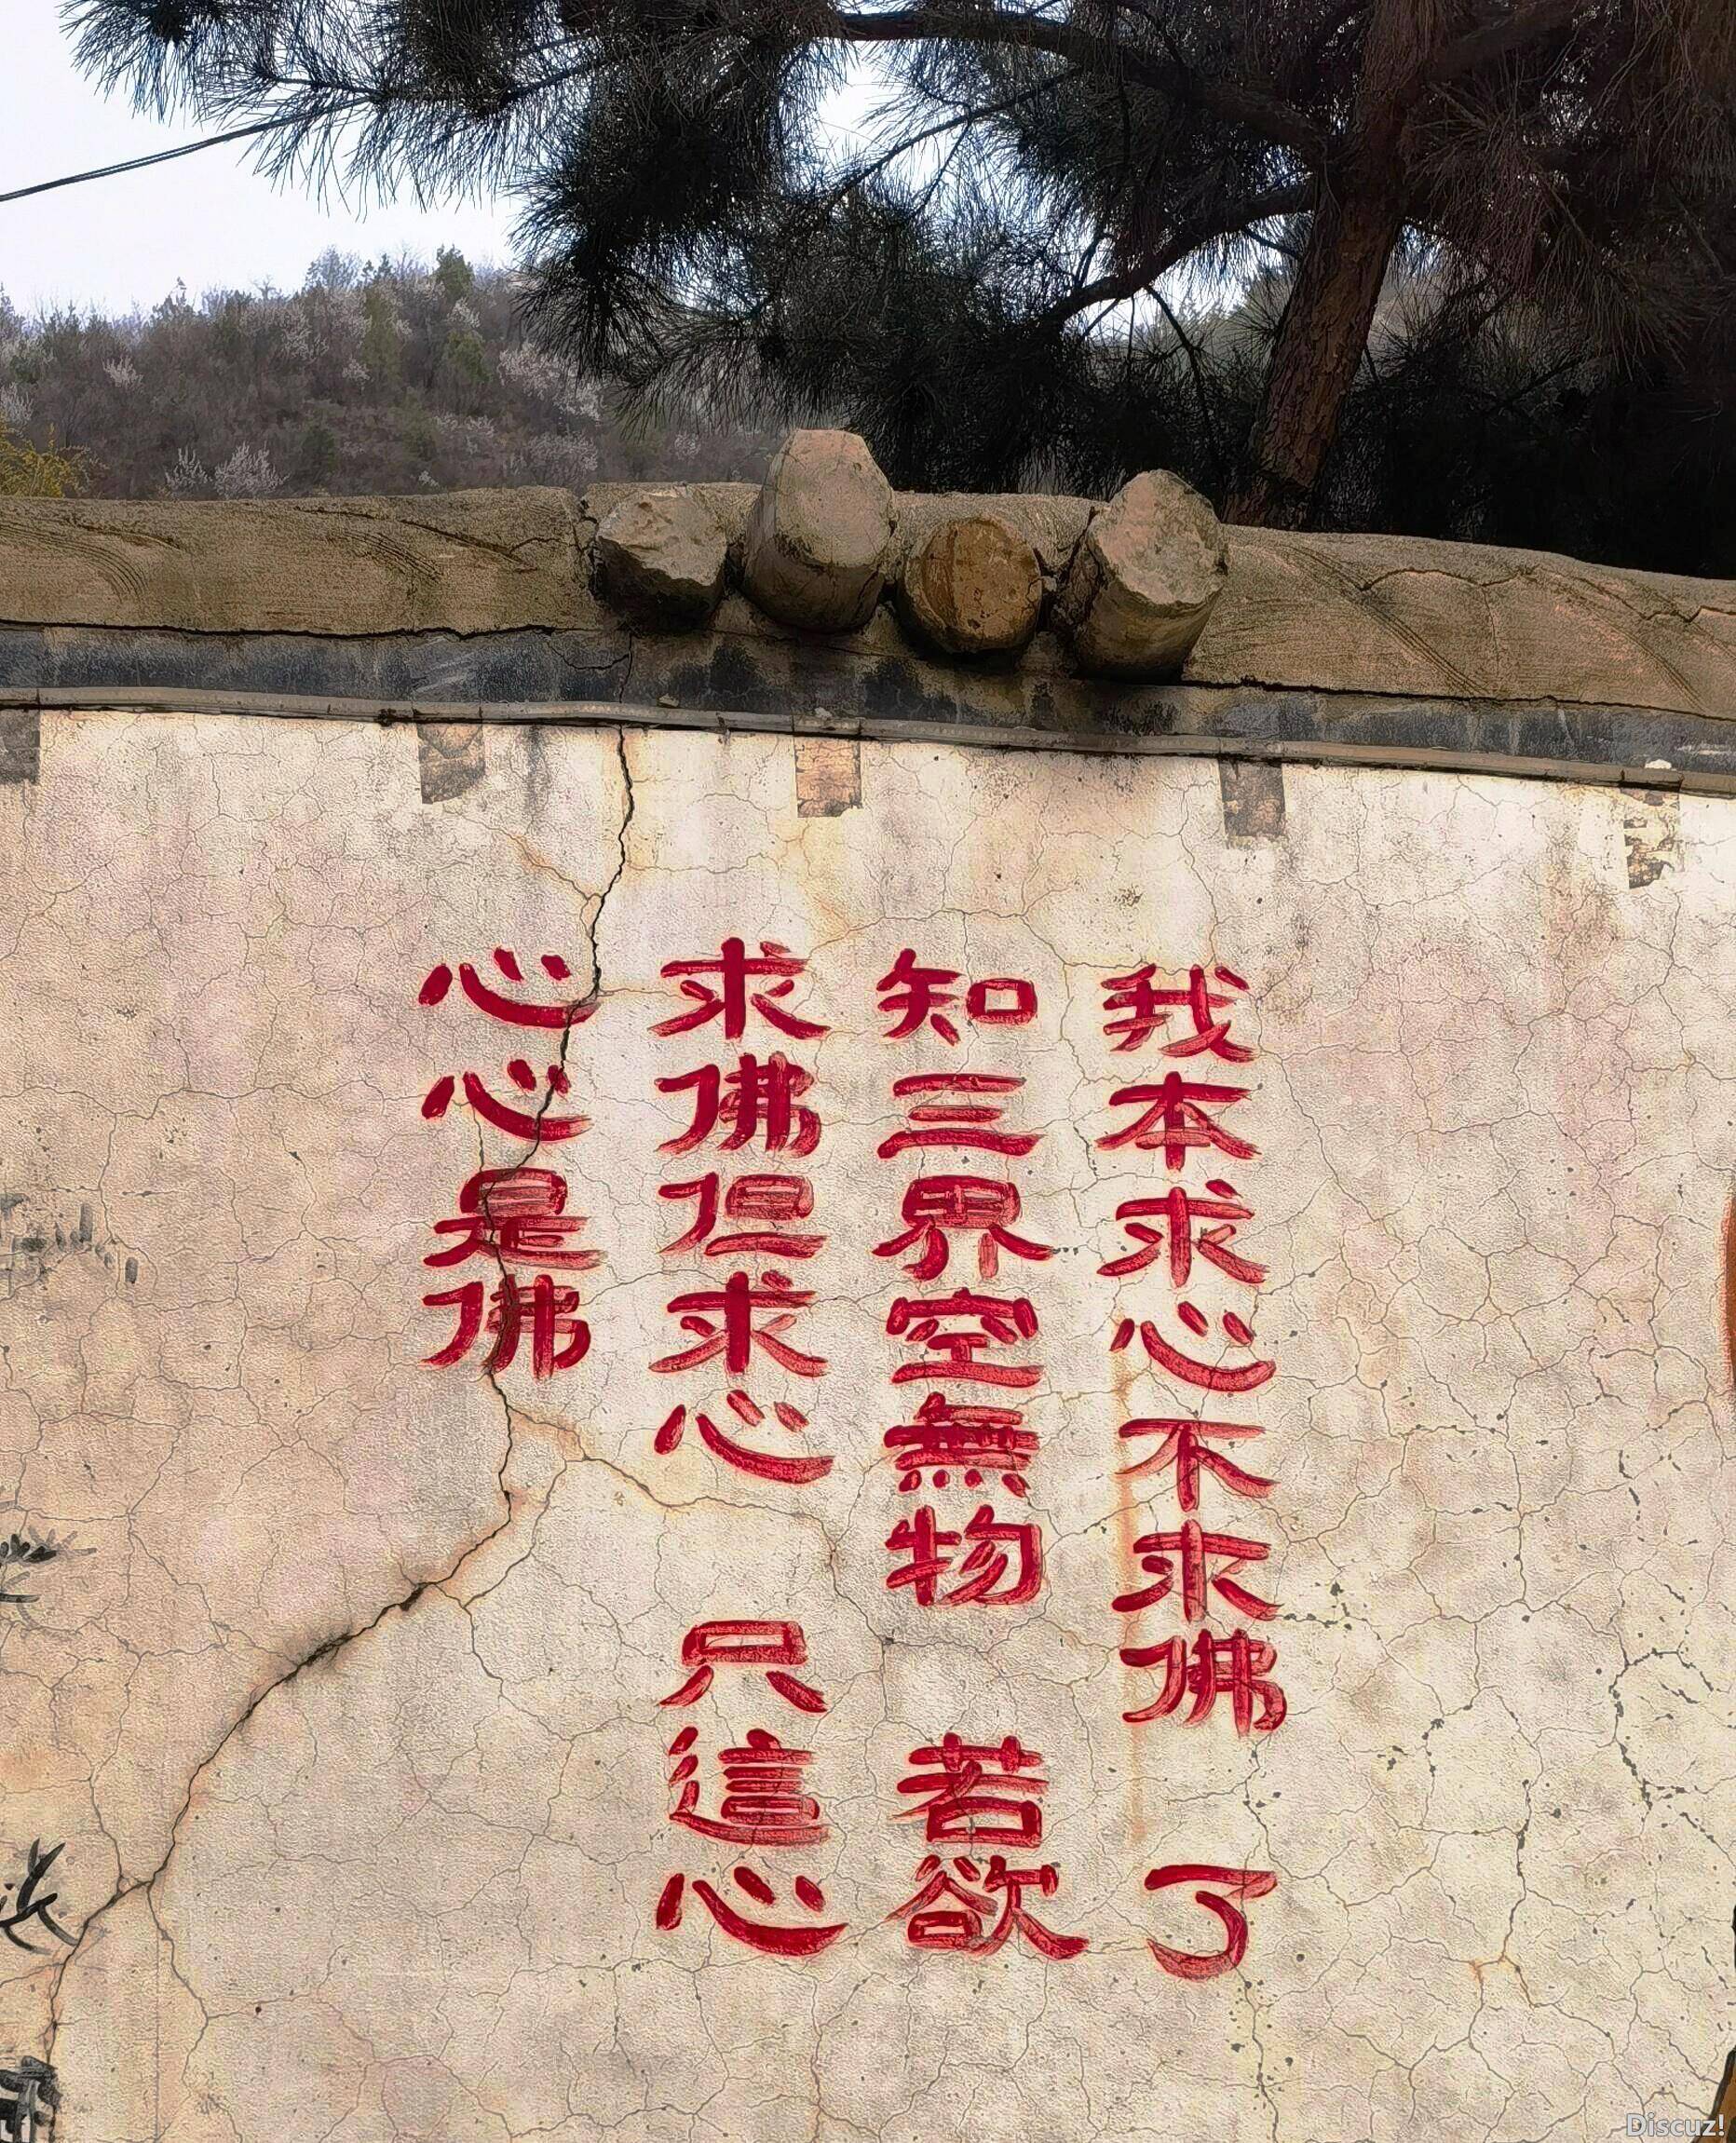 我本求心不求佛 了
知三界空無物 若欲
求佛但求心 只這心
心心是佛
Discuz!